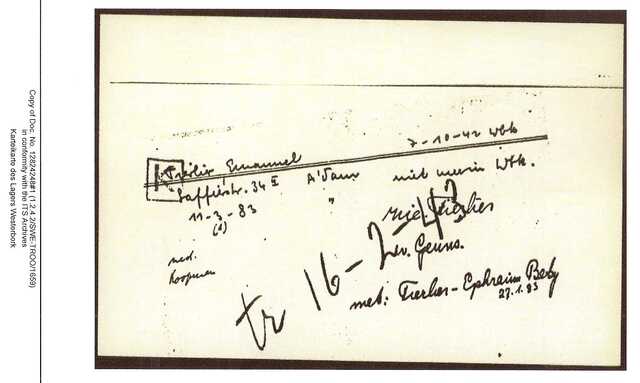 Copy of Doc. No. 12824248#1 (1.2.4.2/SWE-TROO/1659)
in conformity with the ITS Archives
Karteikarte des Lagers Westerbork
7-10-42 Wbk
Emanuel
Saffierstr. 34 II A'dam niet meer in Wbk.
11-3-83 "
(d)
ned.
Koopman
tr 16-2-43
ev. Genns.
met: Fierlier-Ephraim Betsy
27.1.83